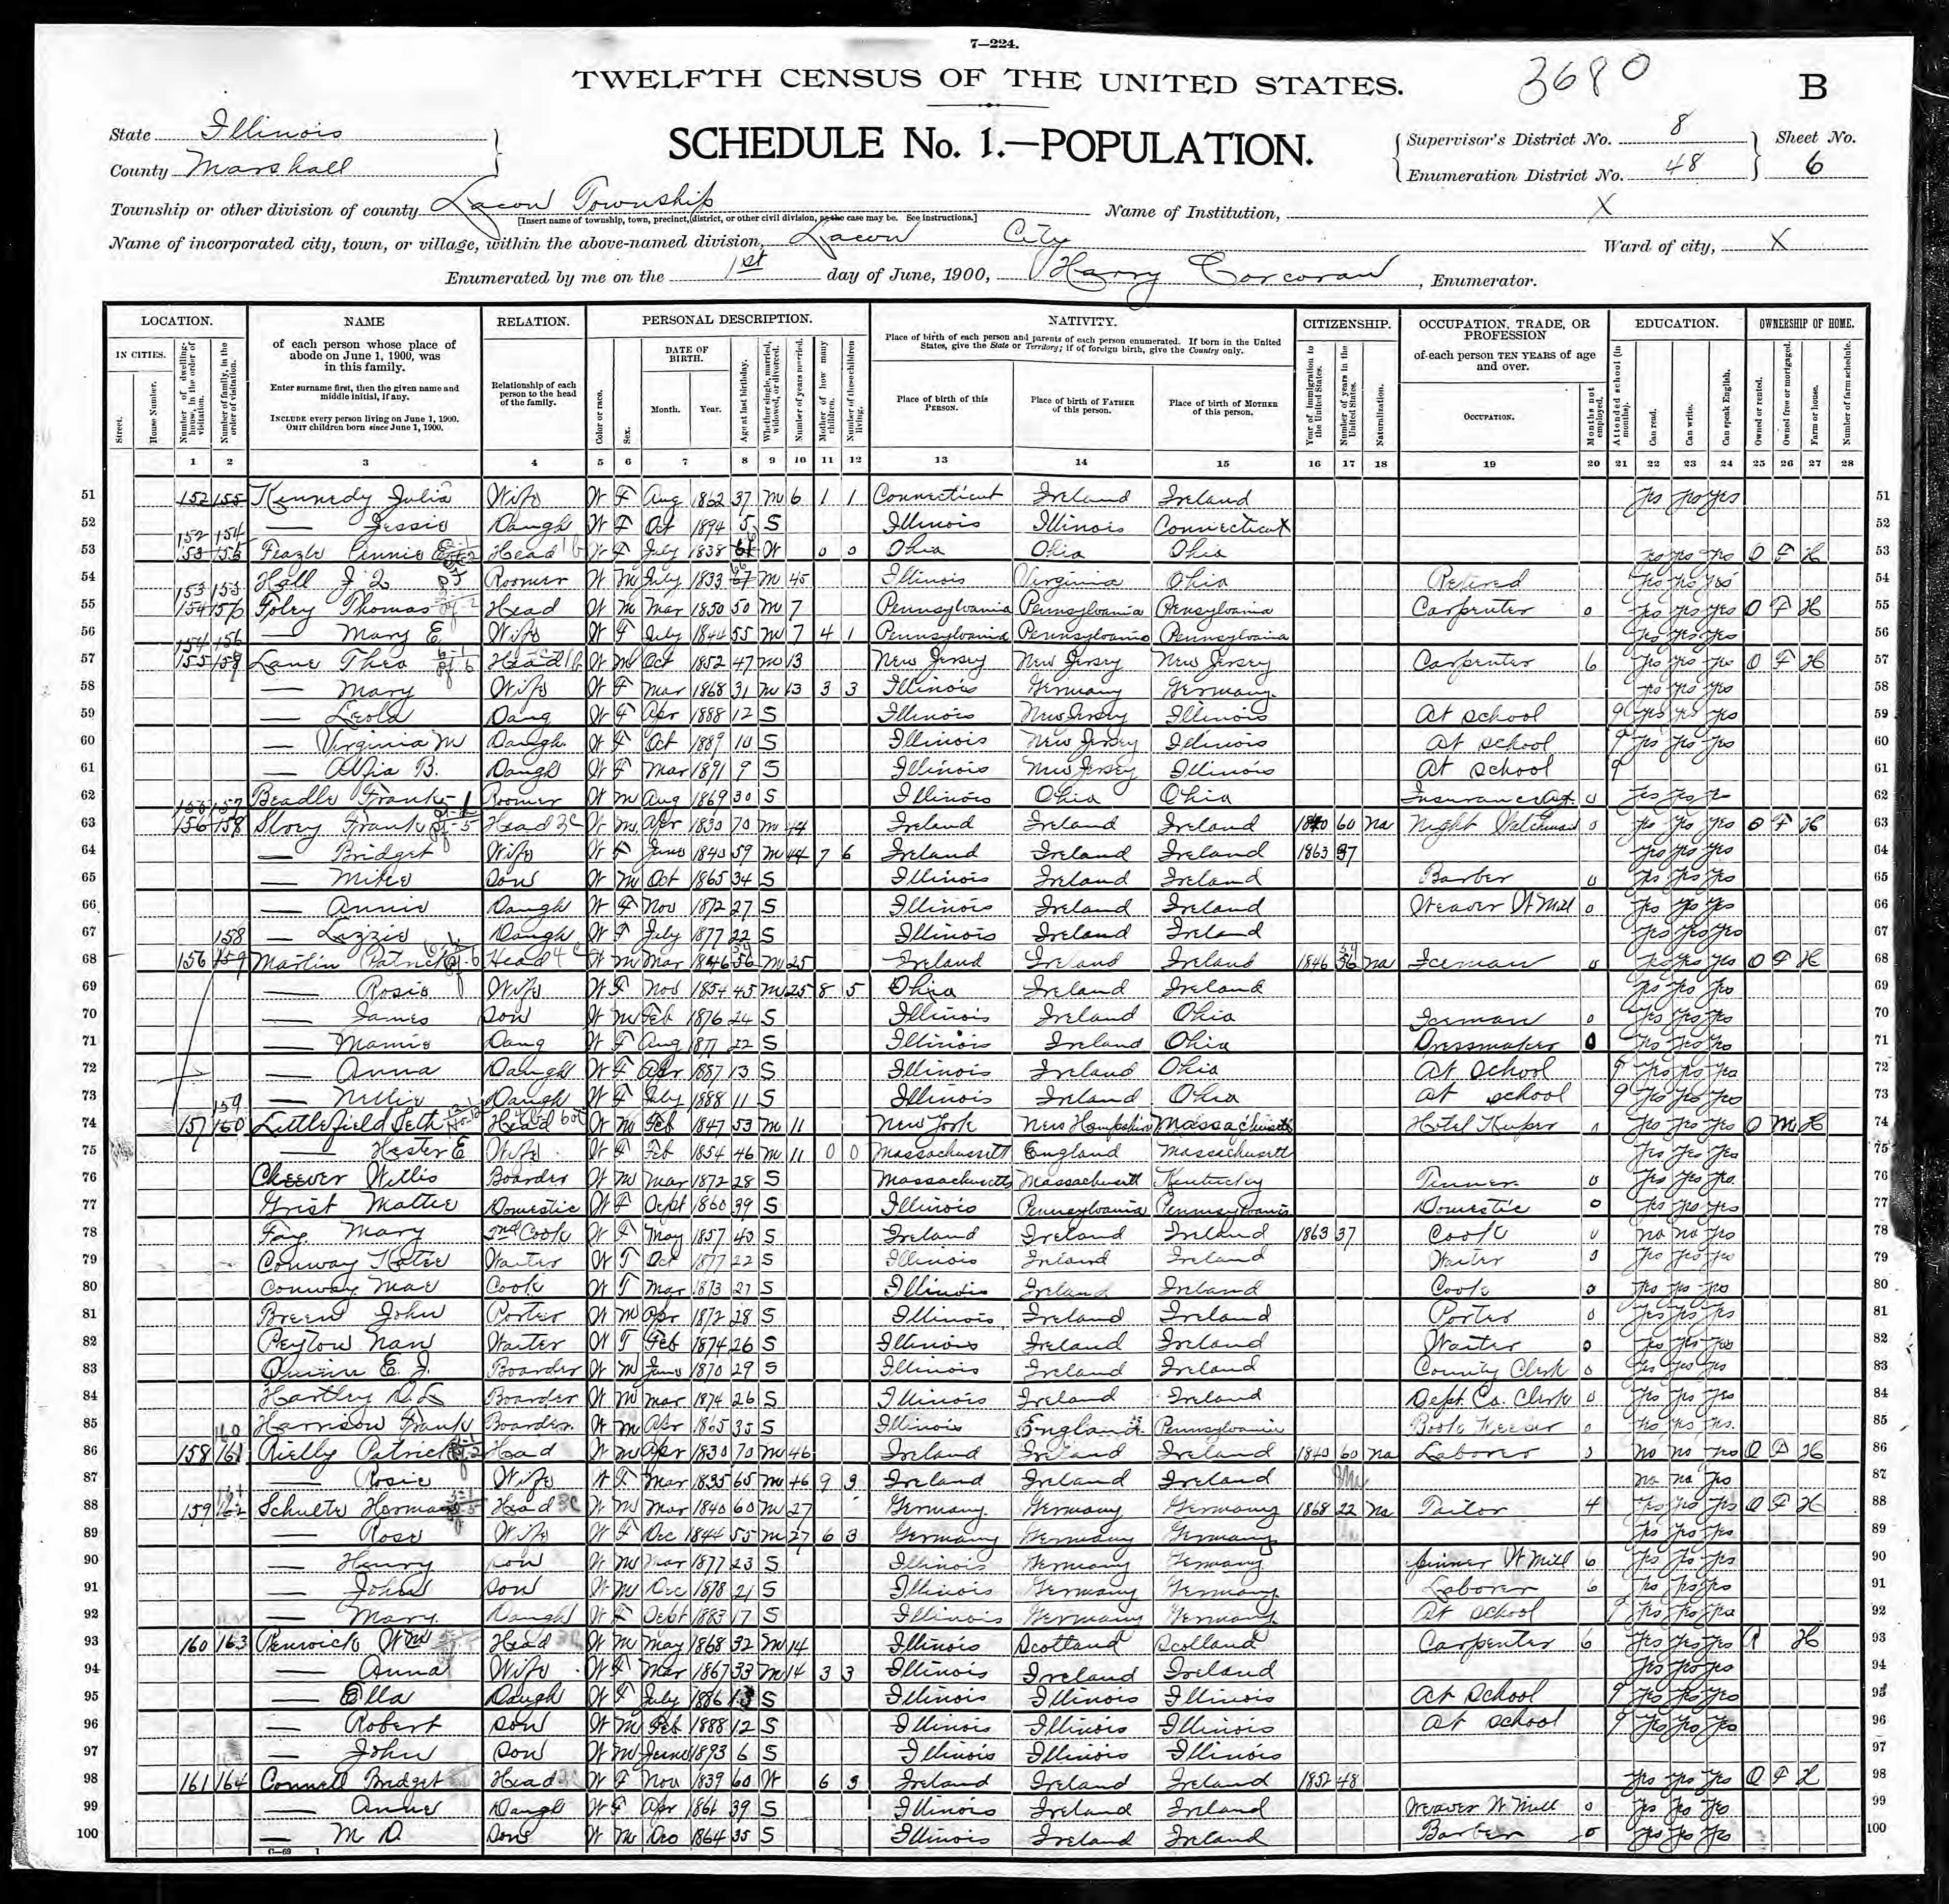 7—224.
TWELFTH CENSUS OF THE UNITED STATES.
3680
B
State Illinois
County Marshall
SCHEDULE No. 1.—POPULATION.
Supervisor's District No. 8
Enumeration District No. 48
Sheet No.
6
Township or other division of county Lacon Township
Name of Institution, X
Name of incorporated city, town, or village, within the above-named division, Lacon City
Ward of city, X
Enumerated by me on the 1st day of June, 1900, Harry Corcoran, Enumerator.
LOCATION. NAME RELATION. PERSONAL DESCRIPTION. NATIVITY. CITIZENSHIP. OCCUPATION, TRADE, OR PROFESSION EDUCATION. OWNERSHIP OF HOME.
IN CITIES. of each person whose place of abode on June 1, 1900, was in this family.
Enter surname first, then the given name and middle initial, if any.
INCLUDE every person living on June 1, 1900. OMIT children born since June 1, 1900.
Relationship of each person to the head of the family.
DATE OF BIRTH. Month. Year.
Place of birth of each person and parents of each person enumerated. If born in the United States, give the State or Territory; if of foreign birth, give the Country only.
Place of birth of this PERSON. Place of birth of FATHER of this person. Place of birth of MOTHER of this person.
of each person TEN YEARS of age and over.
OCCUPATION.
1 2 3 4 5 6 7 8 9 10 11 12 13 14 15 16 17 18 19 20 21 22 23 24 25 26 27 28
51 152 155 Kennedy Julia Wife W F Aug 1862 37 M 6 1 1 Connecticut Ireland Ireland yes yes yes 51
52 152 154 — Jessie Daugh W F Oct 1894 5 S Illinois Illinois Connecticut 52
53 Head W F July 1838 W 0 0 Ohio Ohio Ohio yes yes yes O F H 53
54 Hall Roomer W M July 1833 M 45 Illinois Virginia Ohio Retired yes yes yes 54
55 154 156 Foley Thomas Head W M Mar 1850 50 M 7 Pennsylvania Pennsylvania Pensylvania Carpenter 0 yes yes yes O F H 55
56 154 156 — Mary E Wife W F July 1844 55 M 7 4 1 Pennsylvania Pennsylvania Pennsylvania yes yes yes 56
57 Lane Theo Head W M Oct 1852 47 M 13 New Jersey New Jersey New Jersey Carpenter 6 yes yes yes O F H 57
58 — Mary Wife W F Mar 1868 31 M 13 3 3 Illinois Germany Germany yes yes yes 58
59 — Leola Daug W F Apr 1888 12 S Illinois New Jersey Illinois At school 9 yes yes yes 59
60 — Virginia M Daugh W F Oct 1889 10 S Illinois New Jersey Illinois at school 9 yes yes yes 60
61 — B. Daugh W F Mar 1891 9 S Illinois New Jersey Illinois At school 9 61
62 Beadle Frank Roomer W M Aug 1869 30 S Illinois Ohio Ohio Insurance Agt. 0 yes yes 62
63 156 158 Frank Head W M Apr 1830 70 M 44 Ireland Ireland Ireland 60 na Night Watchman 0 yes yes yes O F H 63
64 — Bridget Wife W F June 1840 59 M 44 7 6 Ireland Ireland Ireland 1863 37 yes yes yes 64
65 — Mike Son W M Oct 1865 34 S Illinois Ireland Ireland Barber 0 yes yes yes 65
66 — Annie Daugh W F Nov 1872 27 S Illinois Ireland Ireland Weaver W Mill 0 yes yes yes 66
67 — Lizzie Daugh W F July 1877 22 S Illinois Ireland Ireland yes yes yes 67
68 156 Martin Patrick Head W M Mar 1846 M 25 Ireland Ireland Ireland 1846 na Iceman 0 yes yes yes O F H 68
69 — Rosie Wife W F Nov 1854 45 M 25 8 5 Ohio Ireland Ireland yes yes yes 69
70 — James Son W M Feb 1876 24 S Illinois Ireland Ohio Iceman 0 yes yes yes 70
71 — Mamie Daug W F Aug 1877 22 S Illinois Ireland Ohio Dressmaker 0 yes yes yes 71
72 — Anna Daugh W F Apr 1887 13 S Illinois Ireland Ohio At school 9 yes yes yes 72
73 — Nellie Daugh W F July 1888 11 S Illinois Ireland Ohio at school 9 yes yes yes 73
74 157 160 Littlefield Seth Head W M Feb 1847 53 M 11 New York New Hampshire Massachusetts Hotel Keeper yes yes yes O M H 74
75 — Hester E Wife W F Feb 1854 46 M 11 0 0 Massachusetts England Massachusetts yes yes yes 75
76 Cheever Willis Boarder W M Mar 1872 28 S Massachusetts Massachusetts Kentucky Tinner 0 yes yes yes 76
77 Grist Mattie Domestic W F Sept 1860 39 S Illinois Pennsylvania Pennsylvania Domestic 0 yes yes yes 77
78 Fay Mary 2nd Cook W F May 1857 43 S Ireland Ireland Ireland 1863 37 Cook 0 no no yes 78
79 Conway Katie Waiter W F Oct 1877 22 S Illinois Ireland Ireland Waiter 0 yes yes yes 79
80 Conway Mae Cook W F Mar 1873 27 S Illinois Ireland Ireland Cook 0 yes yes yes 80
81 Breen John Porter W M Apr 1872 28 S Illinois Ireland Ireland Porter 0 yes yes yes 81
82 Peyton Nan Waiter W F Feb 1874 26 S Illinois Ireland Ireland Waiter 0 yes yes yes 82
83 Quinn E. J. Boarder W M June 1870 29 S Illinois Ireland Ireland County Clerk 0 yes yes yes 83
84 Hartley Boarder W M Mar 1874 26 S Illinois Ireland Ireland Dept. Co. Clerk 0 yes yes yes 84
85 Harrison Frank Boarder W M Apr 1865 35 S Illinois England Pennsylvania Book Keeper 0 yes yes yes 85
86 158 161 Rielly Patrick Head W M Apr 1830 70 M 46 Ireland Ireland Ireland 1840 60 na Laborer no no yes O F H 86
87 — Rosie Wife W F Mar 1835 65 M 46 9 3 Ireland Ireland Ireland no no yes 87
88 159 162 Schulte Herman Head W M Mar 1840 60 M 27 Germany Germany Germany 1868 22 na Tailor 4 yes yes yes O F H 88
89 — Rose Wife W F Dec 1844 55 M 27 6 3 Germany Germany Germany yes yes yes 89
90 — Henry Son W M Mar 1877 23 S Illinois Germany Germany Spinner W Mill 6 yes yes yes 90
91 — John Son W M Dec 1878 21 S Illinois Germany Germany Laborer 6 yes yes yes 91
92 — Mary Daugh W F Sept 1883 17 S Illinois Germany Germany At school 9 yes yes yes 92
93 160 163 Renwick Wm Head W M May 1868 32 M 14 Illinois Scotland Scotland Carpenter 6 yes yes yes R H 93
94 — Anna Wife W F Mar 1867 33 M 14 3 3 Illinois Ireland Ireland yes yes yes 94
95 — Ella Daugh W F July 1886 13 S Illinois Illinois Illinois At School 9 yes yes yes 95
96 — Robert Son W M Feb 1888 12 S Illinois Illinois Illinois at school 9 yes yes yes 96
97 — John Son W M June 1893 6 S Illinois Illinois Illinois 97
98 161 164 Connell Bridget Head W F Nov 1839 60 W 6 3 Ireland Ireland Ireland 1852 48 yes yes yes O F H 98
99 — Anne Daugh W F Apr 1861 39 S Illinois Ireland Ireland Weaver W Mill 0 yes yes yes 99
100 — M D Son W M Dec 1864 35 S Illinois Ireland Ireland Barber 0 yes yes yes 100